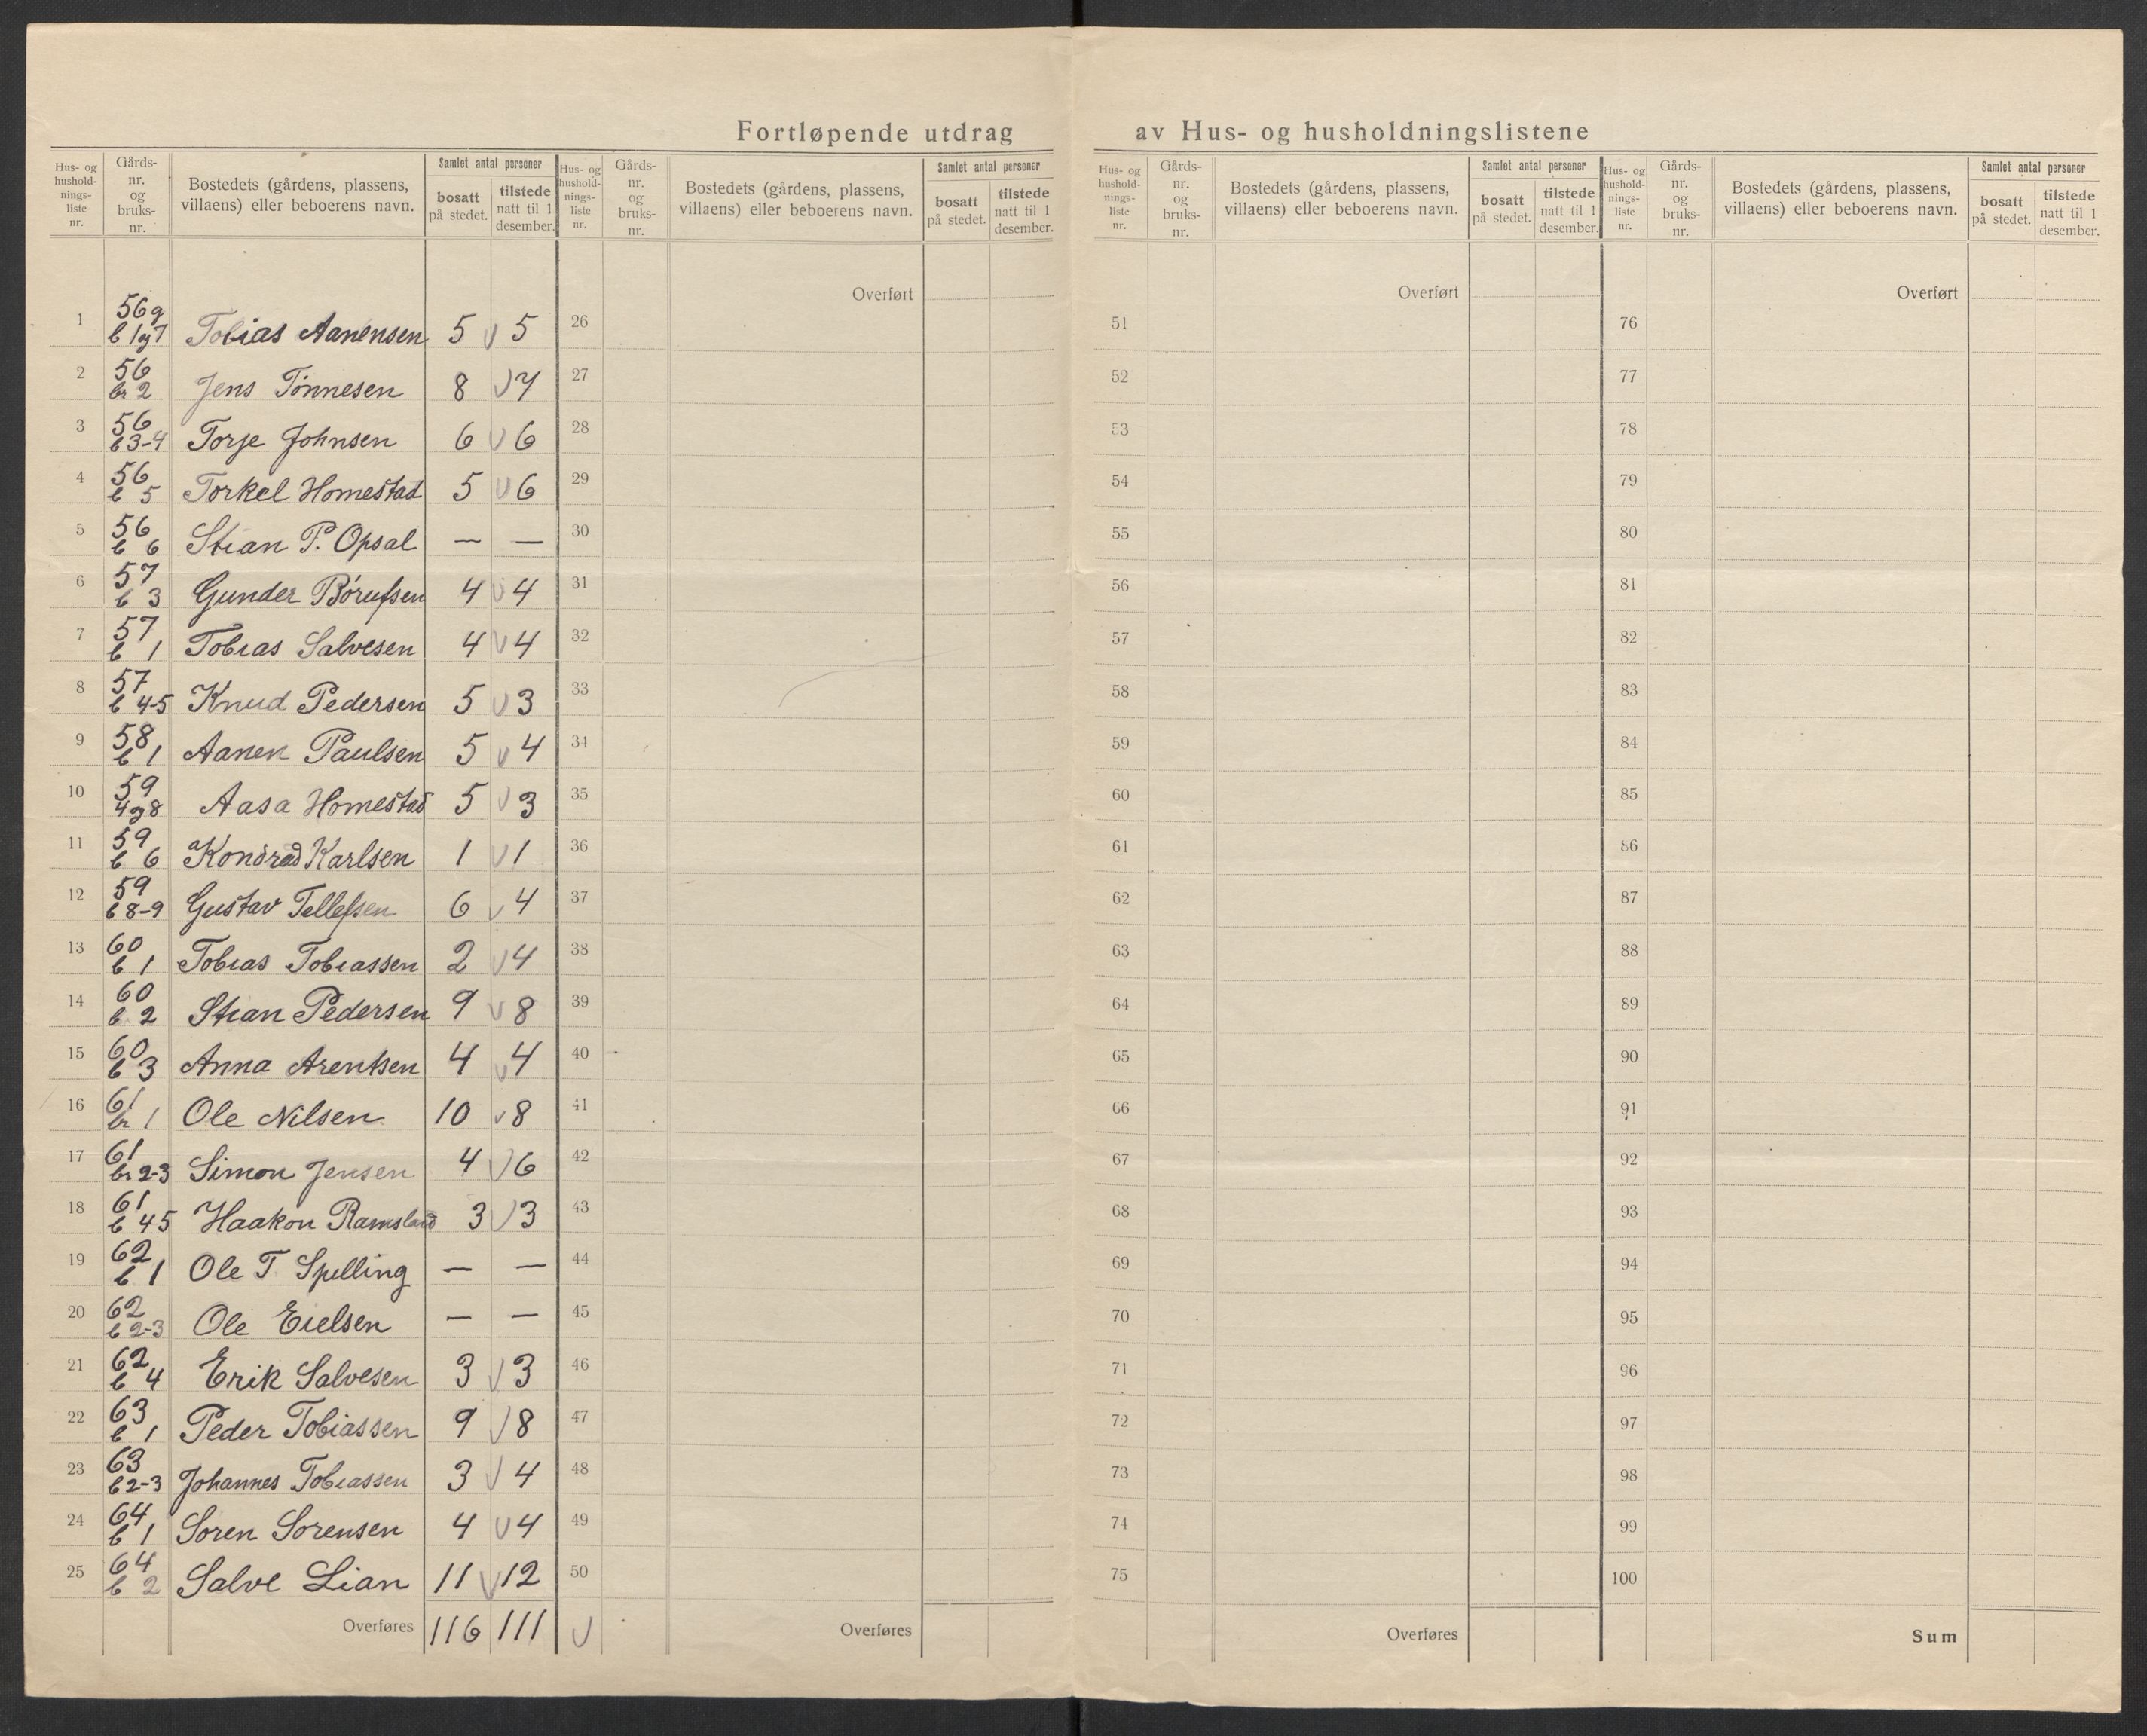 Fortløpende utdrag av Hus- og husholdningslistene
Hus- og hushold-nings-liste nr. Gårds-nr. og bruks-nr. Bostedets (gårdens, plassens, villaens) eller beboerens navn. Samlet antal personer bosatt på stedet. tilstede natt til 1 desember.
Hus- og hushold-nings-liste nr. Gårds-nr. og bruks-nr. Bostedets (gårdens, plassens, villaens) eller beboerens navn. Samlet antal personer bosatt på stedet. tilstede natt til 1 desember.
Hus- og hushold-nings-liste nr. Gårds-nr. og bruks-nr. Bostedets (gårdens, plassens, villaens) eller beboerens navn. Samlet antal personer bosatt på stedet. tilstede natt til 1 desember.
Hus- og hushold-nings-liste nr. Gårds-nr. og bruks-nr. Bostedets (gårdens, plassens, villaens) eller beboerens navn. Samlet antal personer bosatt på stedet. tilstede natt til 1 desember.
Overført Overført Overført
1 56 g b 1 og 7 Tobias Aanensen 5 v 5 26 51 76
2 56 br 2 Jens Tönnesen 8 v 7 27 52 77
3 56 b 3-4 Torje Johnsen 6 v 6 28 53 78
4 56 b 5 Torkel Homestad 5 v 6 29 54 79
5 56 b 6 Stian P. Opsal — — 30 55 80
6 57 b 3 Gunder Börufsen 4 v 4 31 56 81
7 57 b 1 Tobias Salvesen 4 v 4 32 57 82
8 57 b 4-5 Knud Pedersen 5 v 3 33 58 83
9 58 b 1 Aanen Paulsen 5 v 4 34 59 84
10 59 4 og 8 Aasa Homestad 5 v 3 35 60 85
11 59 b 6 Kondrad Karlsen 1 v 1 36 61 86
12 59 b 8-9 Gustav Tellefsen 6 v 4 37 62 87
13 60 b 1 Tobias Tobiassen 2 v 4 38 63 88
14 60 b 2 Stian Pedersen 9 v 8 39 64 89
15 60 b 3 Anna Arentsen 4 v 4 40 65 90
16 61 br 1 Ole Nilsen 10 v 8 41 66 91
17 61 br 2-3 Simon Jensen 4 v 6 42 67 92
18 61 b 45 Haakon Ramsland 3 v 3 43 68 93
19 62 b 1 Ole T. Spelling — — 44 69 94
20 62 b 2-3 Ole Eielsen — — 45 70 95
21 62 b 4 Erik Salvesen 3 v 3 46 71 96
22 63 b 1 Peder Tobiassen 9 v 8 47 72 97
23 63 b 2-3 Johannes Tobiassen 3 v 4 48 73 98
24 64 b 1 Soren Sorensen 4 v 4 49 74 99
25 64 b 2 Salve Lian 11 v 12 50 75 100
Overføres 116 111 v Overføres Overføres Sum